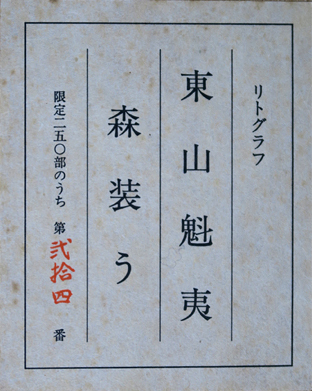 リトグラフ
東山魁夷
森装う
限定二五〇部のうち 第弐拾四番